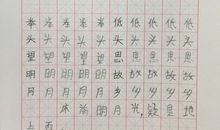 举举举举低低低低
头头头头头头头头
望望望望思思思思
明明明明故故故故
月月月月乡乡乡乡
床前明月光，疑是地
上